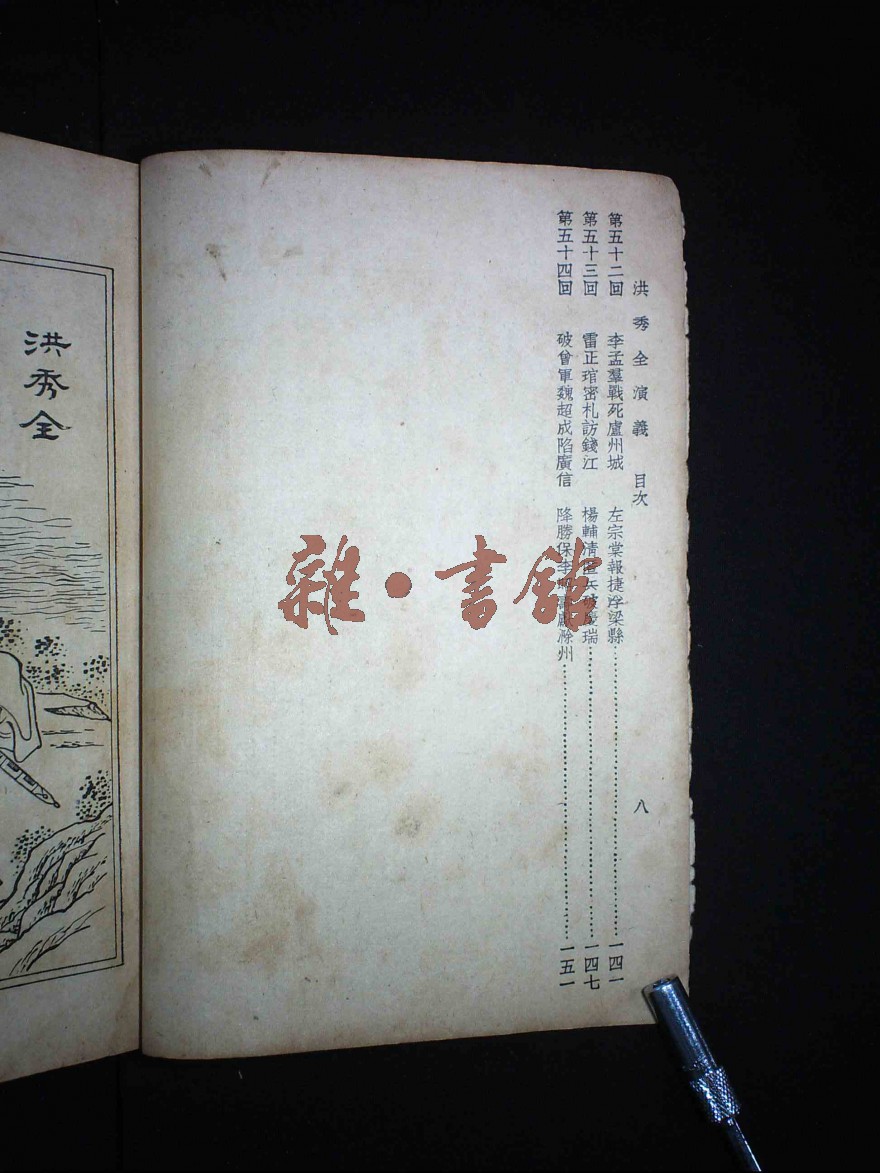 洪秀全演義 目次 八
第五十二回 李孟羣戰死廬州城 左宗棠報捷浮梁縣……一四一
第五十三回 雷正琯密札訪錢江 楊輔清兵破慶瑞……一四七
第五十四回 破曾軍魏超成陷廣信 降勝保李獻滁州……一五一
洪秀全
雜·書館